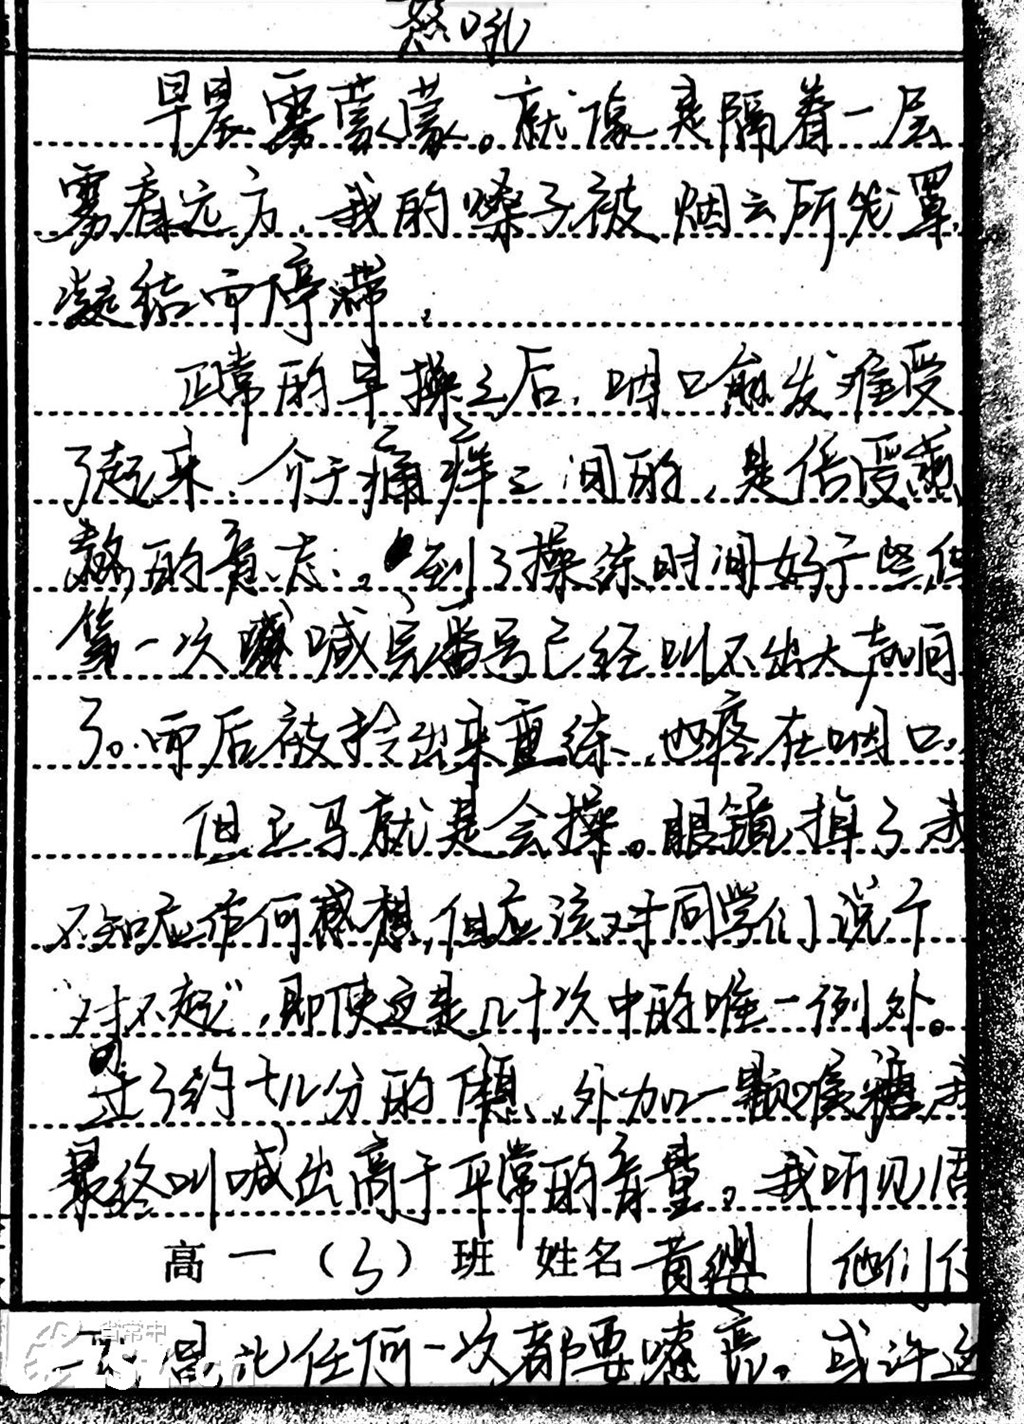 怒吼
早晨雾蒙蒙。就像是隔着一层
雾看远方,我的嗓子被烟云所笼罩,
凝结而停滞。
正常的早操之后,咽口愈发难受
了起来,介于痛痒之间的,是倍受煎
熬的意志。到了操练时间好了些,但
第一次喊完番号已经叫不出大声响
了。而后被拎出来重练,也疼在咽口。
但立马就是会操。眼镜掉了我
不知应作何感想,但应该对同学们说个
“对不起”,即使这是几十次中的唯一例外。
过了约十几分的休息,外加一颗喉糖,我
最终叫喊出高于平常的音量。我听见
高一(3)班 姓名 黄 他们
是比任何一次都要嘹亮。或许这
省常中